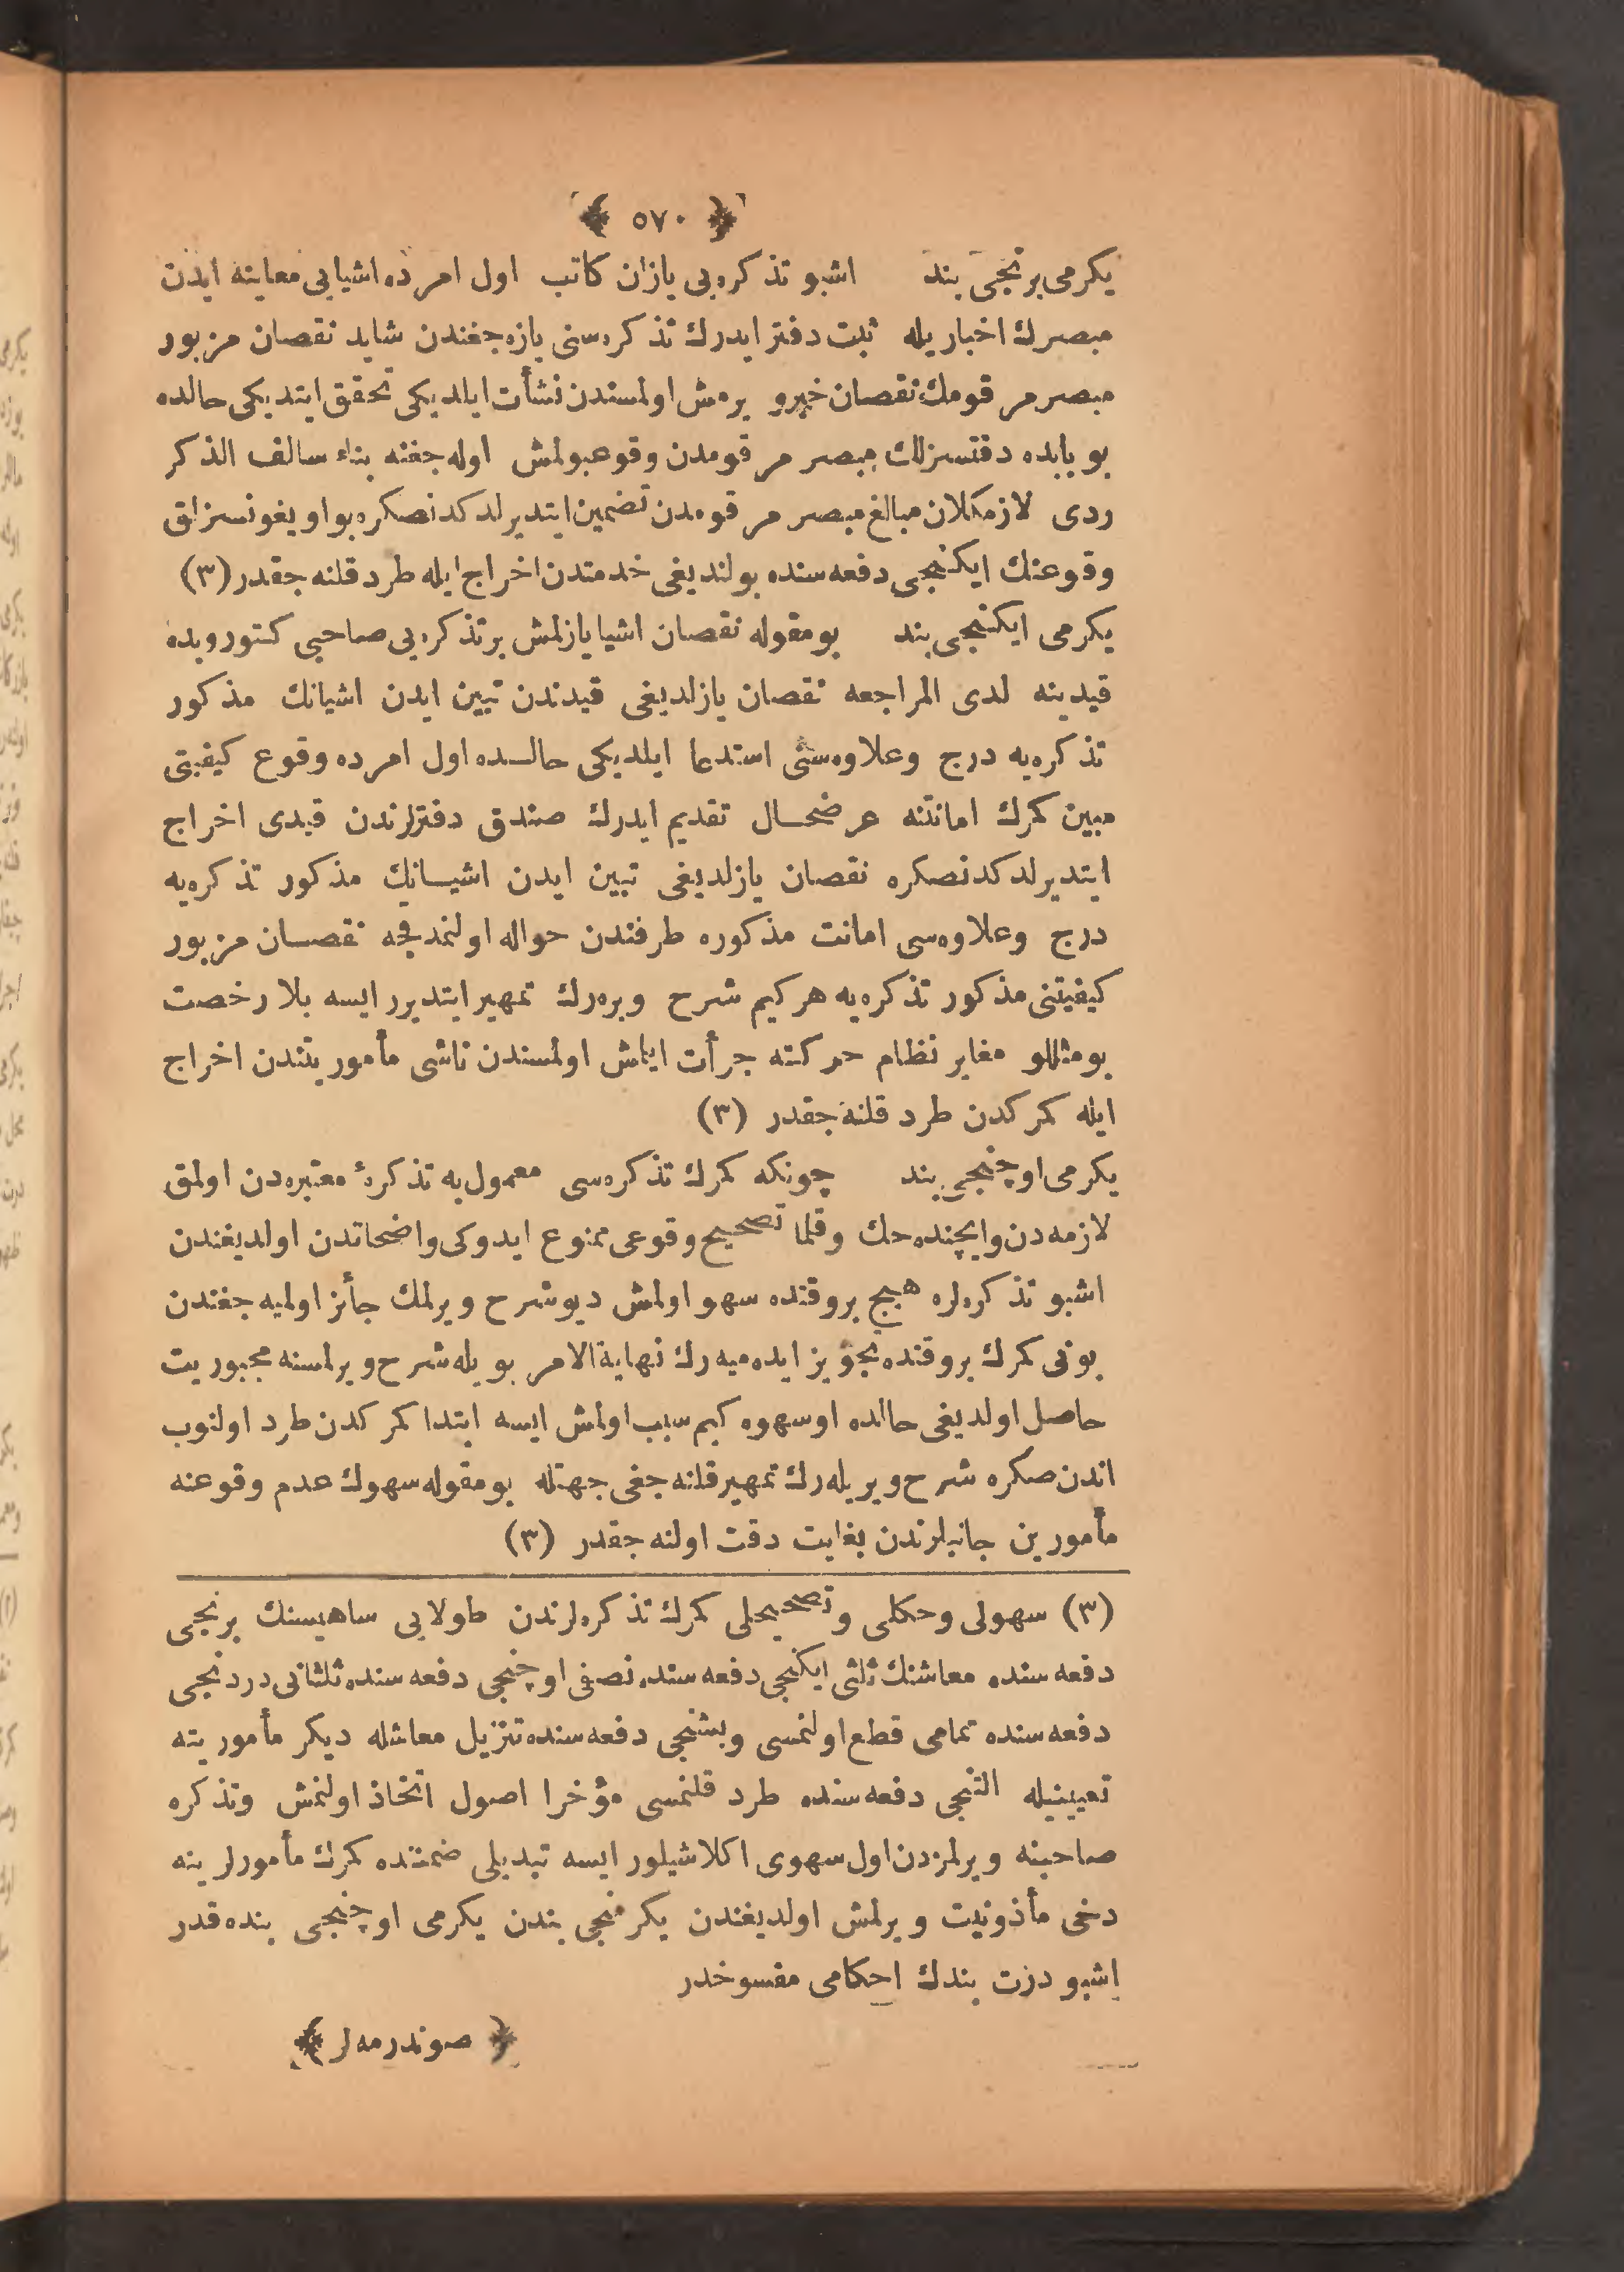 ﴿ ٥٧٠ ﴾
يكرمى برنجى بند اشبو تذكره‌يى يازان كاتب اول امرده اشيايى معاينه ايدن
مبصرك اخباريله ثبت دفتر ايدرك تذكره‌سنى يازه‌جغندن شايد نقصان مزبور
مبصر مرقومك نقصان خبر ويرمش اولمسندن نشأت ايلديكى تحقق ايتديكى حالده
بو بابده دقتسزلك مبصر مرقومدن وقوعبولمش اوله‌جغنه بناء سالف الذكر
ردى لازمكلان مبالغ مبصر مرقومدن تضمين ايتديرلدكدنصكره بو اويغونسزلق
وقوعنك ايكنجى دفعه‌سنده بولنديغى خدمتدن اخراج ايله طرد قلنه‌جقدر (٣)
يكرمى ايكنجى بند بومقوله نقصان اشيا يازلمش بر تذكره‌يى صاحبى كتوروبده
قيدينه لدى المراجعه نقصان يازلديغى قيدندن تبين ايدن اشيانك مذكور
تذكره‌يه درج وعلاوه‌سنى استدعا ايلديكى حالـده اول امرده وقوع كيفيتى
مبين كمرك امانتنه عرضحـال تقديم ايدرك صندق دفترلرندن قيدى اخراج
ايتديرلدكدنصكره نقصان يازلديغى تبين ايدن اشيـانك مذكور تذكره‌يه
درج وعلاوه‌سى امانت مذكوره طرفندن حواله اولنمدقجه نقصـان مزبور
كيفيتنى مذكور تذكره‌يه هر كيم شرح ويره‌رك تمهير ايتديرر ايسه بلا رخصت
بومثللو مغاير نظام حركته جرأت ايلمش اولمسندن ناشى مأموريتندن اخراج
ايله كمركدن طرد قلنه‌جقدر (٣)
يكرمى اوچنجى بند چونكه كمرك تذكره‌سى معمول‌به تذكرۀ معتبره‌دن اولمق
لازمه‌دن وايچنده حك وقلما تصحيح وقوعى ممنوع ايدوكى واضحاتدن اولديغندن
اشبو تذكره‌لره هيچ بر وقتده سهو اولمش ديو شرح ويرلمك جائز اولميه‌جغندن
بونى كمرك بر وقتده تجويز ايده‌ميه‌رك نهاية الامر بويله شرح ويرلمسنه مجبوريت
حاصل اولديغى حالده او سهوه كيم سبب اولمش ايسه ابتدا كمركدن طرد اولنوب
اندن صكره شرح ويريله‌رك تمهير قلنه‌جغى جهتله بومقوله سهوك عدم وقوعنه
مأمورين جانبلرندن بغايت دقت اولنه‌جقدر (٣)
(٣) سهولى وحكلى وتصحيحلى كمرك تذكره‌لرندن طولايى ساهيسنك برنجى
دفعه‌سنده معاشنك ثلثى ايكنجى دفعه‌سنده نصفى اوچنجى دفعه‌سنده ثلثانى دردنجى
دفعه‌سنده تمامى قطع اولنمسى وبشنجى دفعه‌سنده تنزيل معاشله ديكر مأموريته
تعيينيله التنجى دفعه‌سنده طرد قلنمسى مؤخرا اصول اتخاذ اولنمش وتذكره
صاحبنه ويرلمزدن اول سهوى اكلاشيلور ايسه تبديلى ضمننده كمرك مأمورلرينه
دخى مأذونيت ويرلمش اولديغندن يكرمنجى بندن يكرمى اوچنجى بنده قدر
اشبو درت بندك احكامى مفسوخدر
﴿ صوندرمه‌لر ﴾